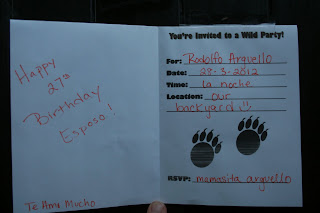 Happy
27°
Birthday
Esposo!
Te Amo Mucho
You're Invited to a Wild Party!
For: Rodolfo Arguello
Date: 28-3-2012
Time: la noche
Location: our
backyard :)
RSVP: mamasita arguello